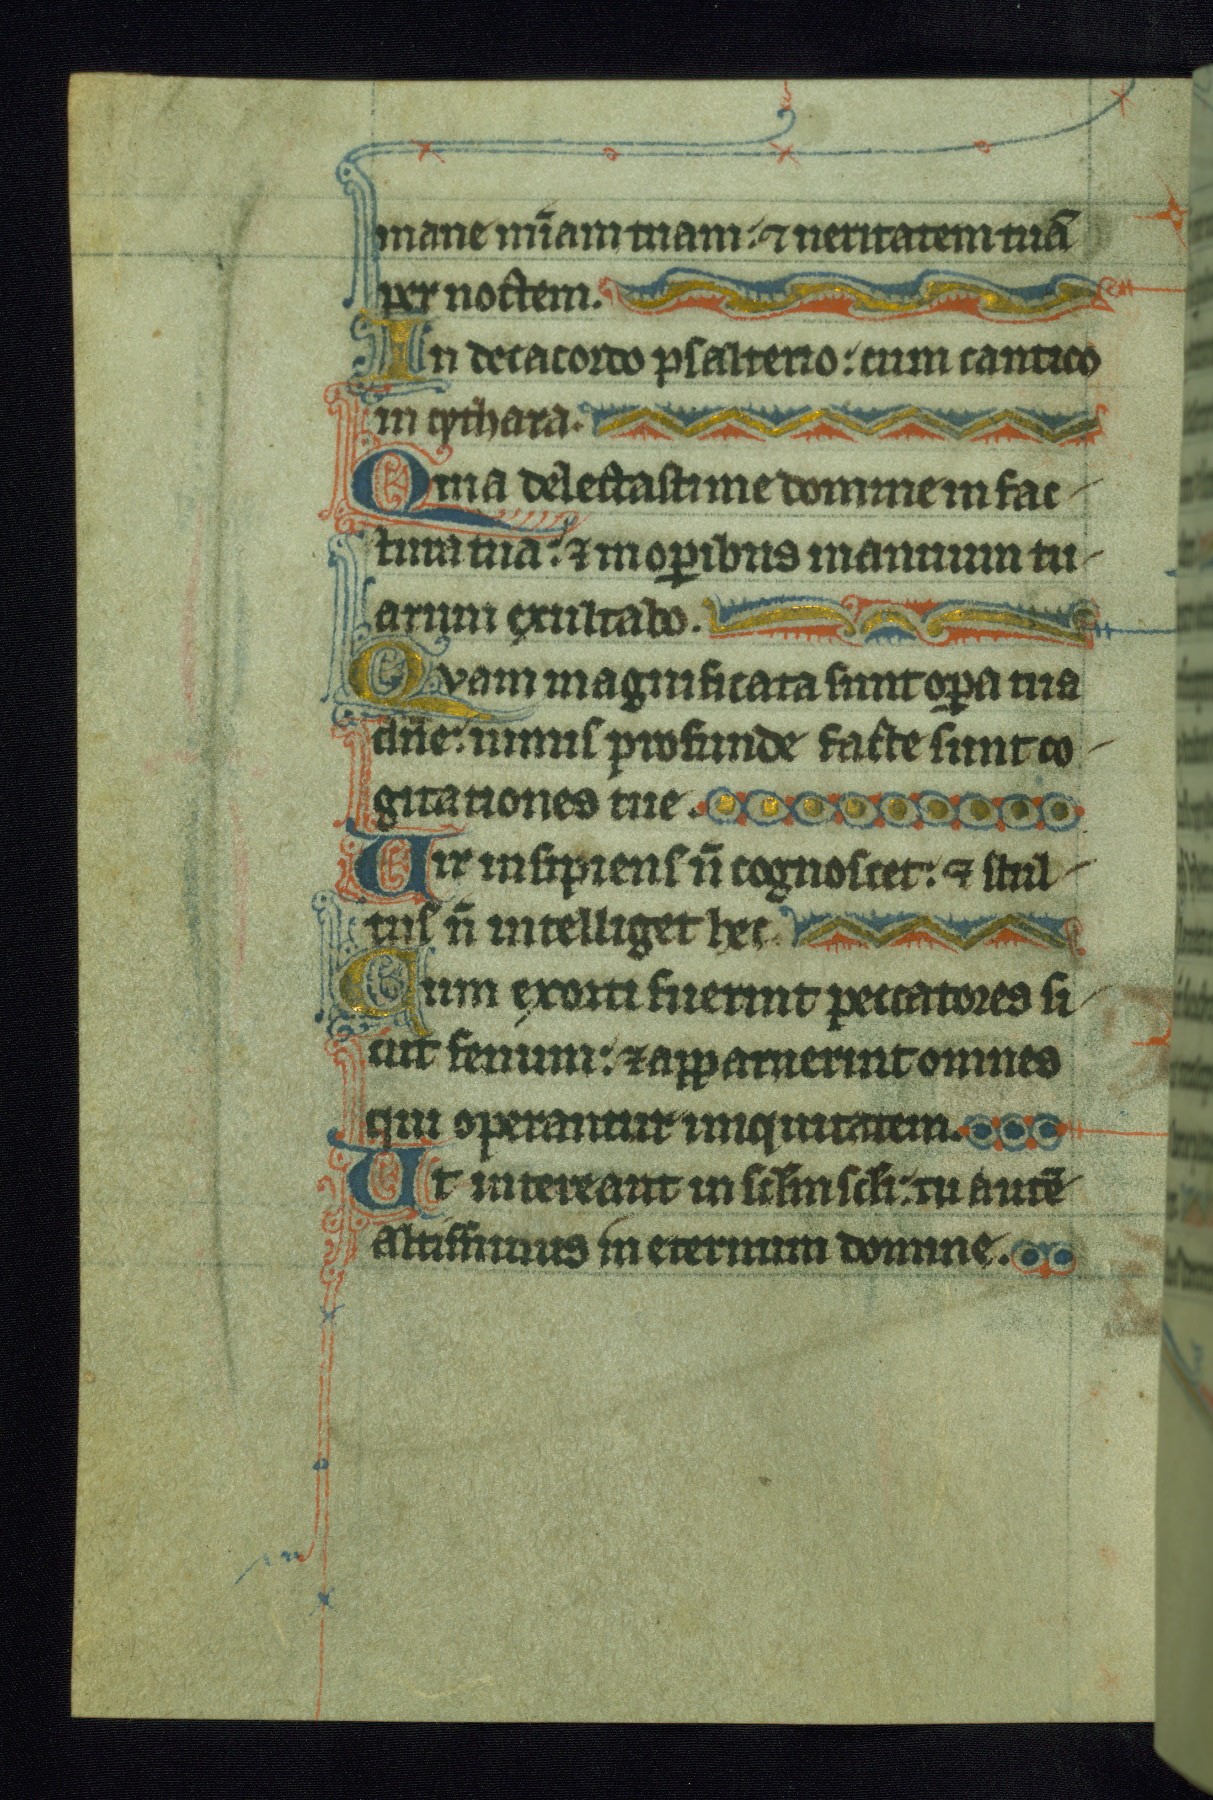 mane mīam tuam: ⁊ ueritatem tuā
per noctem.
In decacordo psalterio: cum cantico
in cythara.
Quia delectasti me domine in fac
tura tua: ⁊ in oꝑibus manuum tu
arum exultabo.
Qvam magnificata sunt oꝑa tua
dn̄e: nimis profunde facte sunt co
gitationes tue.
Uir insipiens n̄ cognoscet: ⁊ stul
tus n̄ intelliget hec
Cum exorti fuerint peccatores si
cut fenum: ⁊ apparuerint omnes
qui operantur iniquitatem.
Ut intereant in sclm scli: tu autē
altissimus in eternum domine.